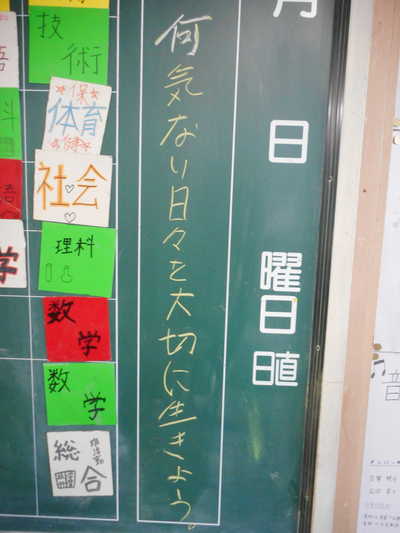 月
日
曜日
日直
何気ない日々を大切に生きよう。
技術
保
体育
健
社会
理科
数学
数学
総合
学
音